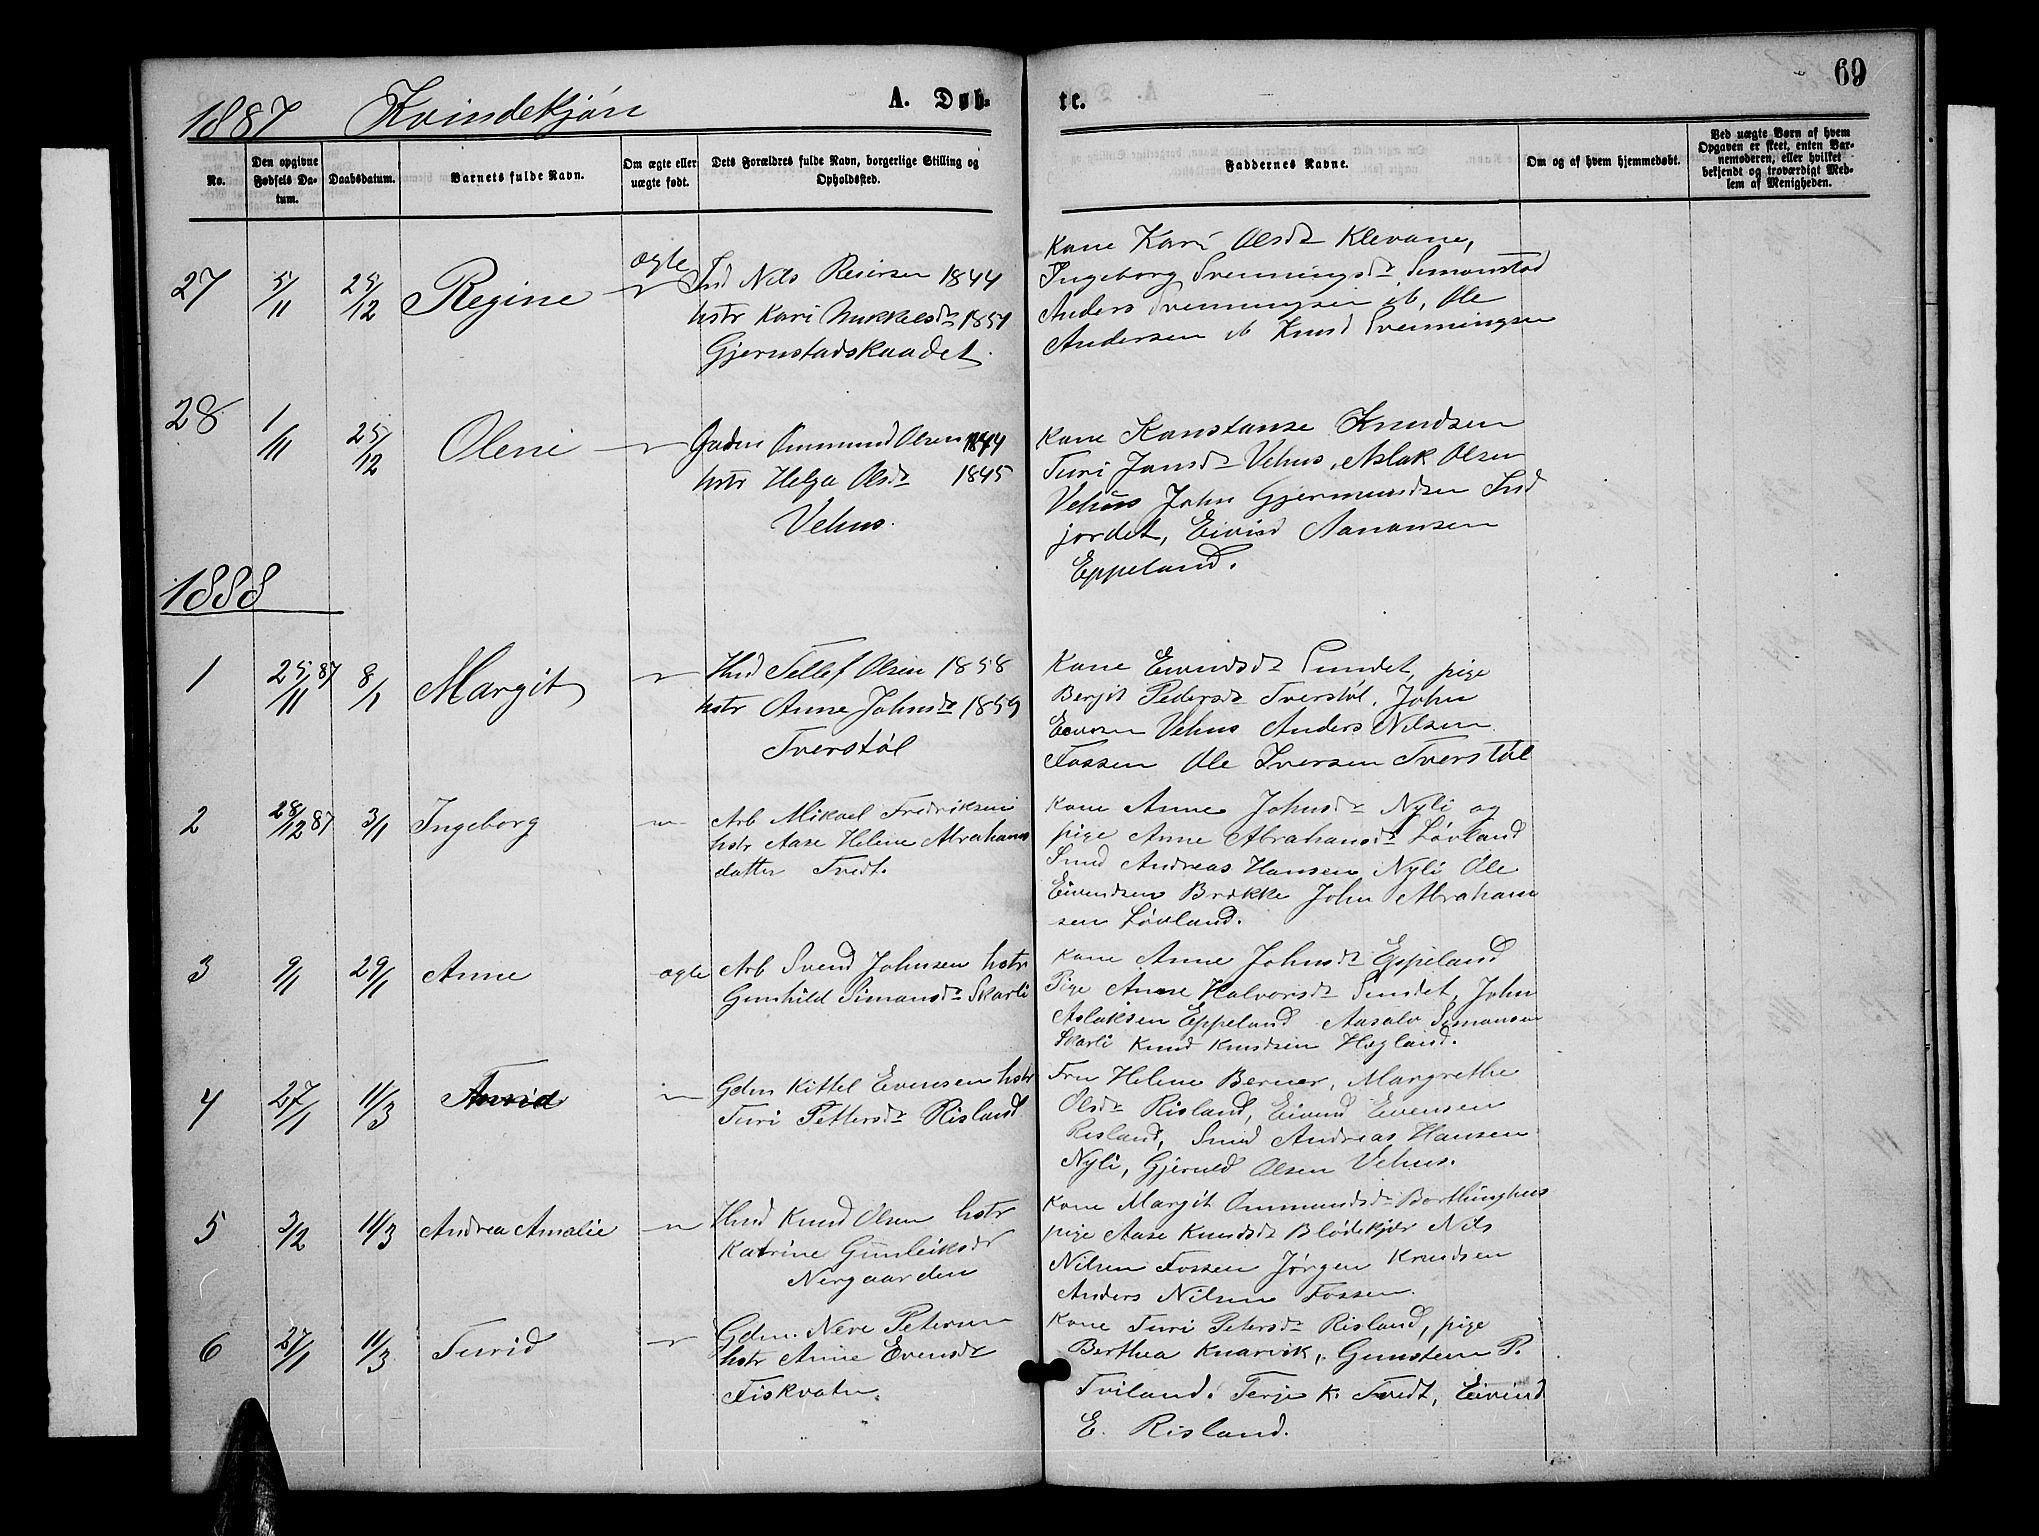 69
1887 Kvindekjøn A. Døb- te.
No.
Den opgivne Fødsels Da- tum.
Daabsdatum.
Barnets fulde Navn.
Om ægte eller uægte født.
Dets Forældres fulde Navn, borgerlige Stilling og Opholdssted.
Faddernes Navne.
Om og af hvem hjemmedøbt.
Ved uægte Børn af hvem Opgaven er skeet, enten Bar- nemoderen, eller hvilket bekjendt og troværdigt Med- lem af Menigheden.
27 5/11 25/12 Regine ægte
Ind Nils Reiersen 1844
hstr Kari Mikkelsdr
Gjernstadskaadet
Kone Kari Olsdr Klevane,
Ingeborg Svenningsdr Simonstad
Anders Svenningsen ib, Ole
Andersen ib Knud Svenningsen
28 1/11 25/12 Oleni
Gaden Ommund Olsen 1844
hstr Helga Olsdr 1845
Vehus.
Kone Konstanse Knudsen
Turi Jonsdr Vehus, Aslak Olsen
Vehus John Gjermundsen Ind
jordet, Eivind Aanonsen
Eppeland.
1888
1 25/11 87 8/1 Margit
Hnd Tellef Olsen 1858
hstr Anne Johnsdr 1859
Tverstøl
Kone Eivindsdr Sundet, pige
Bergit Pedersdr Tverstøl, John
Vehus Anders Nilsen
Fossen Ole Iversen Tverstøl
2 28/12 87 3/1 Ingeborg
Arb Mikael Fredriksen
hstr Aase Helene Abrahams
datter Tvedt.
Kone Anne Johnsdr Nyli og
pige Anne Abrahamsdr Løvland
Smed Andreas Hansen Nyli Ole
Eivendsen Brekke John Abraham
sen Løvland.
3 9/1 29/1 Anne ægte
Arb Svend Johnsen hstr
Gunhild Simonsdr Skarli
Kone Anne Johnsdr Eppeland
Pige Anne Halvorsdr Sundet, John
Aslaksen Eppeland Aasalv Simonsen
Skarli Knud Knudsen Høgland.
4 27/1 11/3 Turid
Gdm Kittel Evensen hstr
Turi Pettersdr Risland
Fru Helene Berner, Margrethe
Olsdr Risland, Eivind Evensen
Risland, Smed Andreas Hansen
Nyli, Gjeruld Olsen Vehus.
5 3/2 11/3 Andrea Amalie
Hnd Knud Olsen hstr
Katrine Gunleiksdr
Nergaarden
Kone Margit Ommundsdr
pige Aase Knudsdr Blødekjær Nils
Nilsen Fossen Jørgen Knudsen
Anders Nilsen Fossen.
6 27/1 11/3 Turid
Gdm. Neri Petersen
hstr Anne Evensdr
Fiskvatn.
Kone Turi Petersdr Risland, pige
Berthea Knarvik, Gunsteen P.
Tviland. Terje K. Tvedt, Eivind
E. Risland.